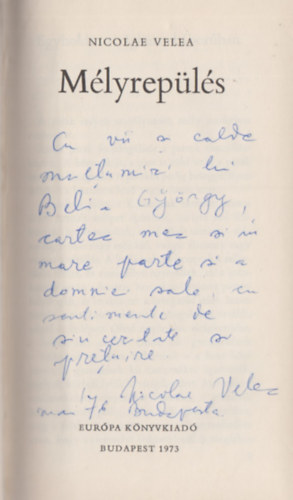 NICOLAE VELEA
Mélyrepülés
Cu vii și calde
mulțumiri lui
Belia György,
cartea mea și în
mare parte și a
domniei sale, cu
sentimente de
sinceritate și
prețuire
Nicolae Velea
mai 76 Budapesta
EURÓPA KÖNYVKIADÓ
BUDAPEST 1973